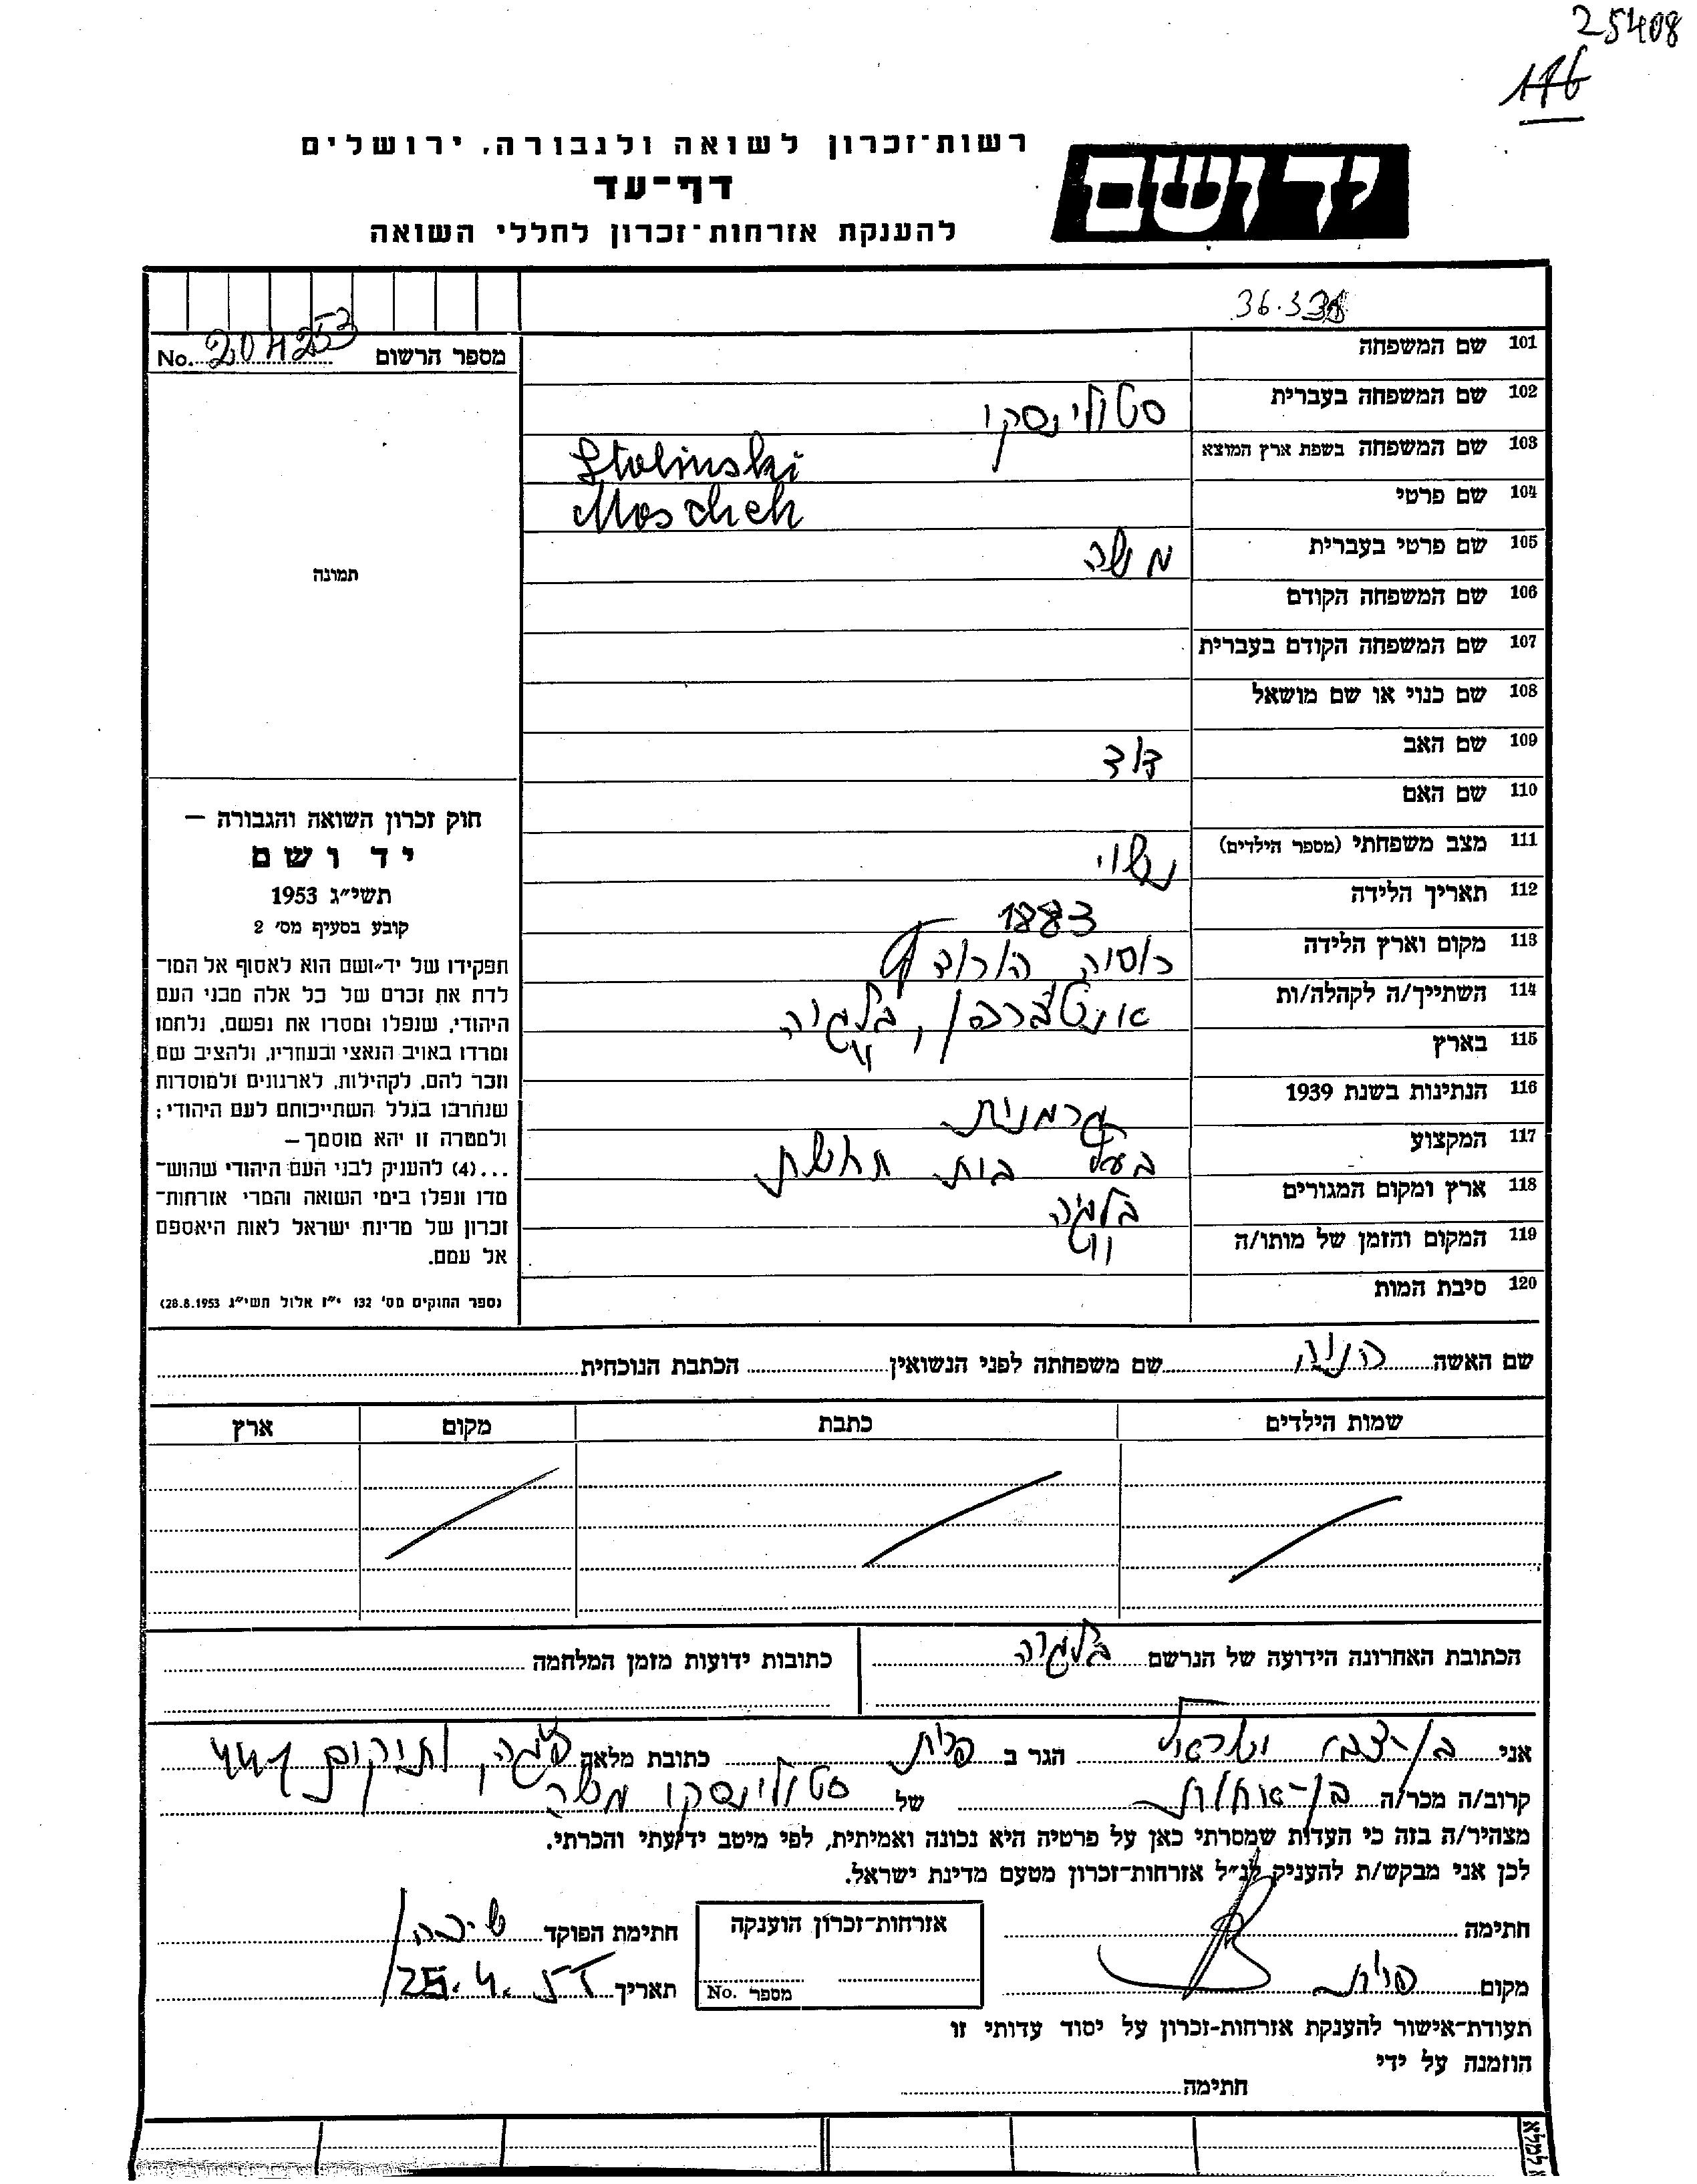 25408
116
רשות־זכרון לשואה ולגבורה, ירושלים
יד ושם
דף־עד
להענקת אזרחות־זכרון לחללי השואה
מספר הרשום No. 204253
תמונה
חוק זכרון השואה והגבורה –
יד ושם
תשי״ג 1953
קובע בסעיף מס׳ 2
תפקידו של יד־ושם הוא לאסוף אל המו־
לדת את זכרם של כל אלה מבני העם
היהודי, שנפלו ומסרו את נפשם, נלחמו
ומרדו באויב הנאצי ובעוזריו, ולהציב שם
וזכר להם, לקהילות, לארגונים ולמוסדות
שנחרבו בגלל השתייכותם לעם היהודי;
ולמטרה זו יהא מוסמך –
...(4) להעניק לבני העם היהודי שהוש־
מדו ונפלו בימי השואה והמרי אזרחות־
זכרון של מדינת ישראל לאות היאספם
אל עמם.
(ספר החוקים מס׳ 132 י״ז אלול תשי״ג 28.8.1953)
101 שם המשפחה
102 שם המשפחה בעברית סטולינסקי
103 שם המשפחה בשפת ארץ המוצא Stolinski
104 שם פרטי Moscheh
105 שם פרטי בעברית משה
106 שם המשפחה הקודם
107 שם המשפחה הקודם בעברית
108 שם כנוי או שם מושאל
109 שם האב דוד
110 שם האם
111 מצב משפחתי (מספר הילדים) נשוי
112 תאריך הלידה 1883
113 מקום וארץ הלידה רוסיה
114 השתייך/ה לקהלה/ות אנטוורפן, בלגיה
115 בארץ
116 הנתינות בשנת 1939 גרמנית
117 המקצוע בעל בית חרושת
118 ארץ ומקום המגורים בלגיה
119 המקום והזמן של מותו/ה
120 סיבת המות
שם האשה חניה שם משפחתה לפני הנשואין הכתבת הנוכחית
שמות הילדים כתבת מקום ארץ
הכתובת האחרונה הידועה של הנרשם בלגיה כתובות ידועות מזמן המלחמה
אני בן־צבי ישראל הגר ב כתובת מלאה
קרוב/ה מכר/ה בן־אחות של סטולינסקי משה
מצהיר/ה בזה כי העדות שמסרתי כאן על פרטיה היא נכונה ואמיתית, לפי מיטב ידיעתי והכרתי.
לכן אני מבקש/ת להעניק לנ״ל אזרחות־זכרון מטעם מדינת ישראל.
חתימה אזרחות־זכרון הוענקה חתימת הפוקד
מקום מספר No. תאריך 25.4.55
תעודת־אישור להענקת אזרחות־זכרון על יסוד עדותי זו
הוזמנה על ידי
חתימה